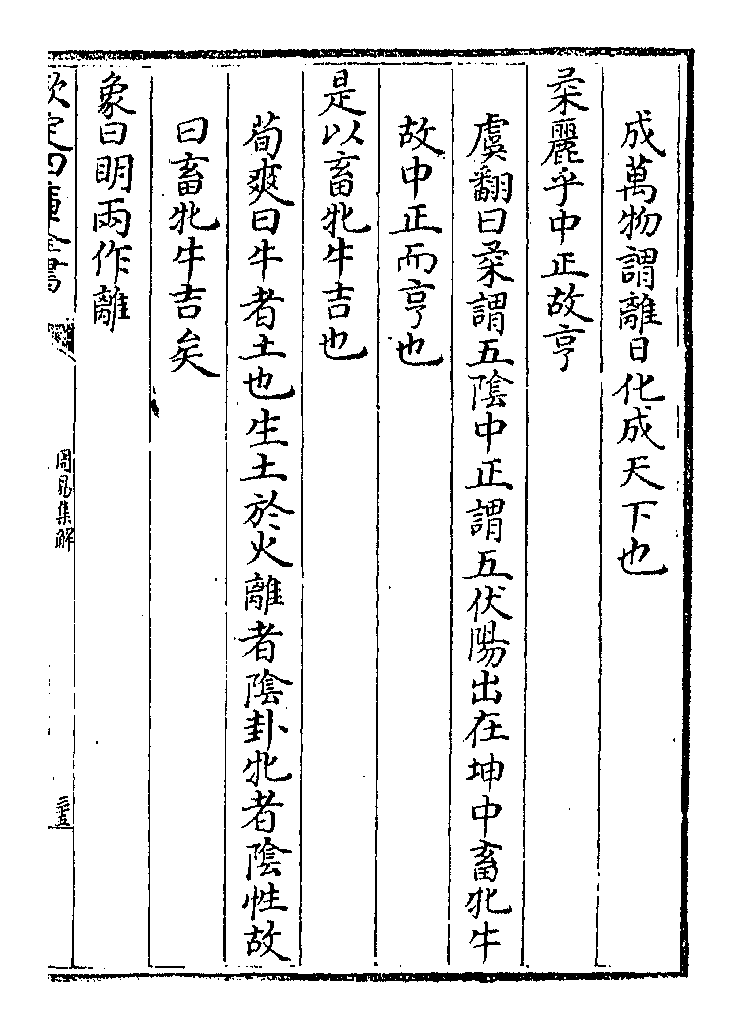 成萬物謂離日化成天下也
柔麗乎中正故亨
虞翻曰柔謂五陰中正謂五伏陽出在坤中畜牝牛
故中正而亨也
是以畜牝牛吉也
荀爽曰牛者土也生土於火離者陰卦牝者陰性故
曰畜牝牛吉矣
象曰明兩作離
欽定四庫全書
周易集解